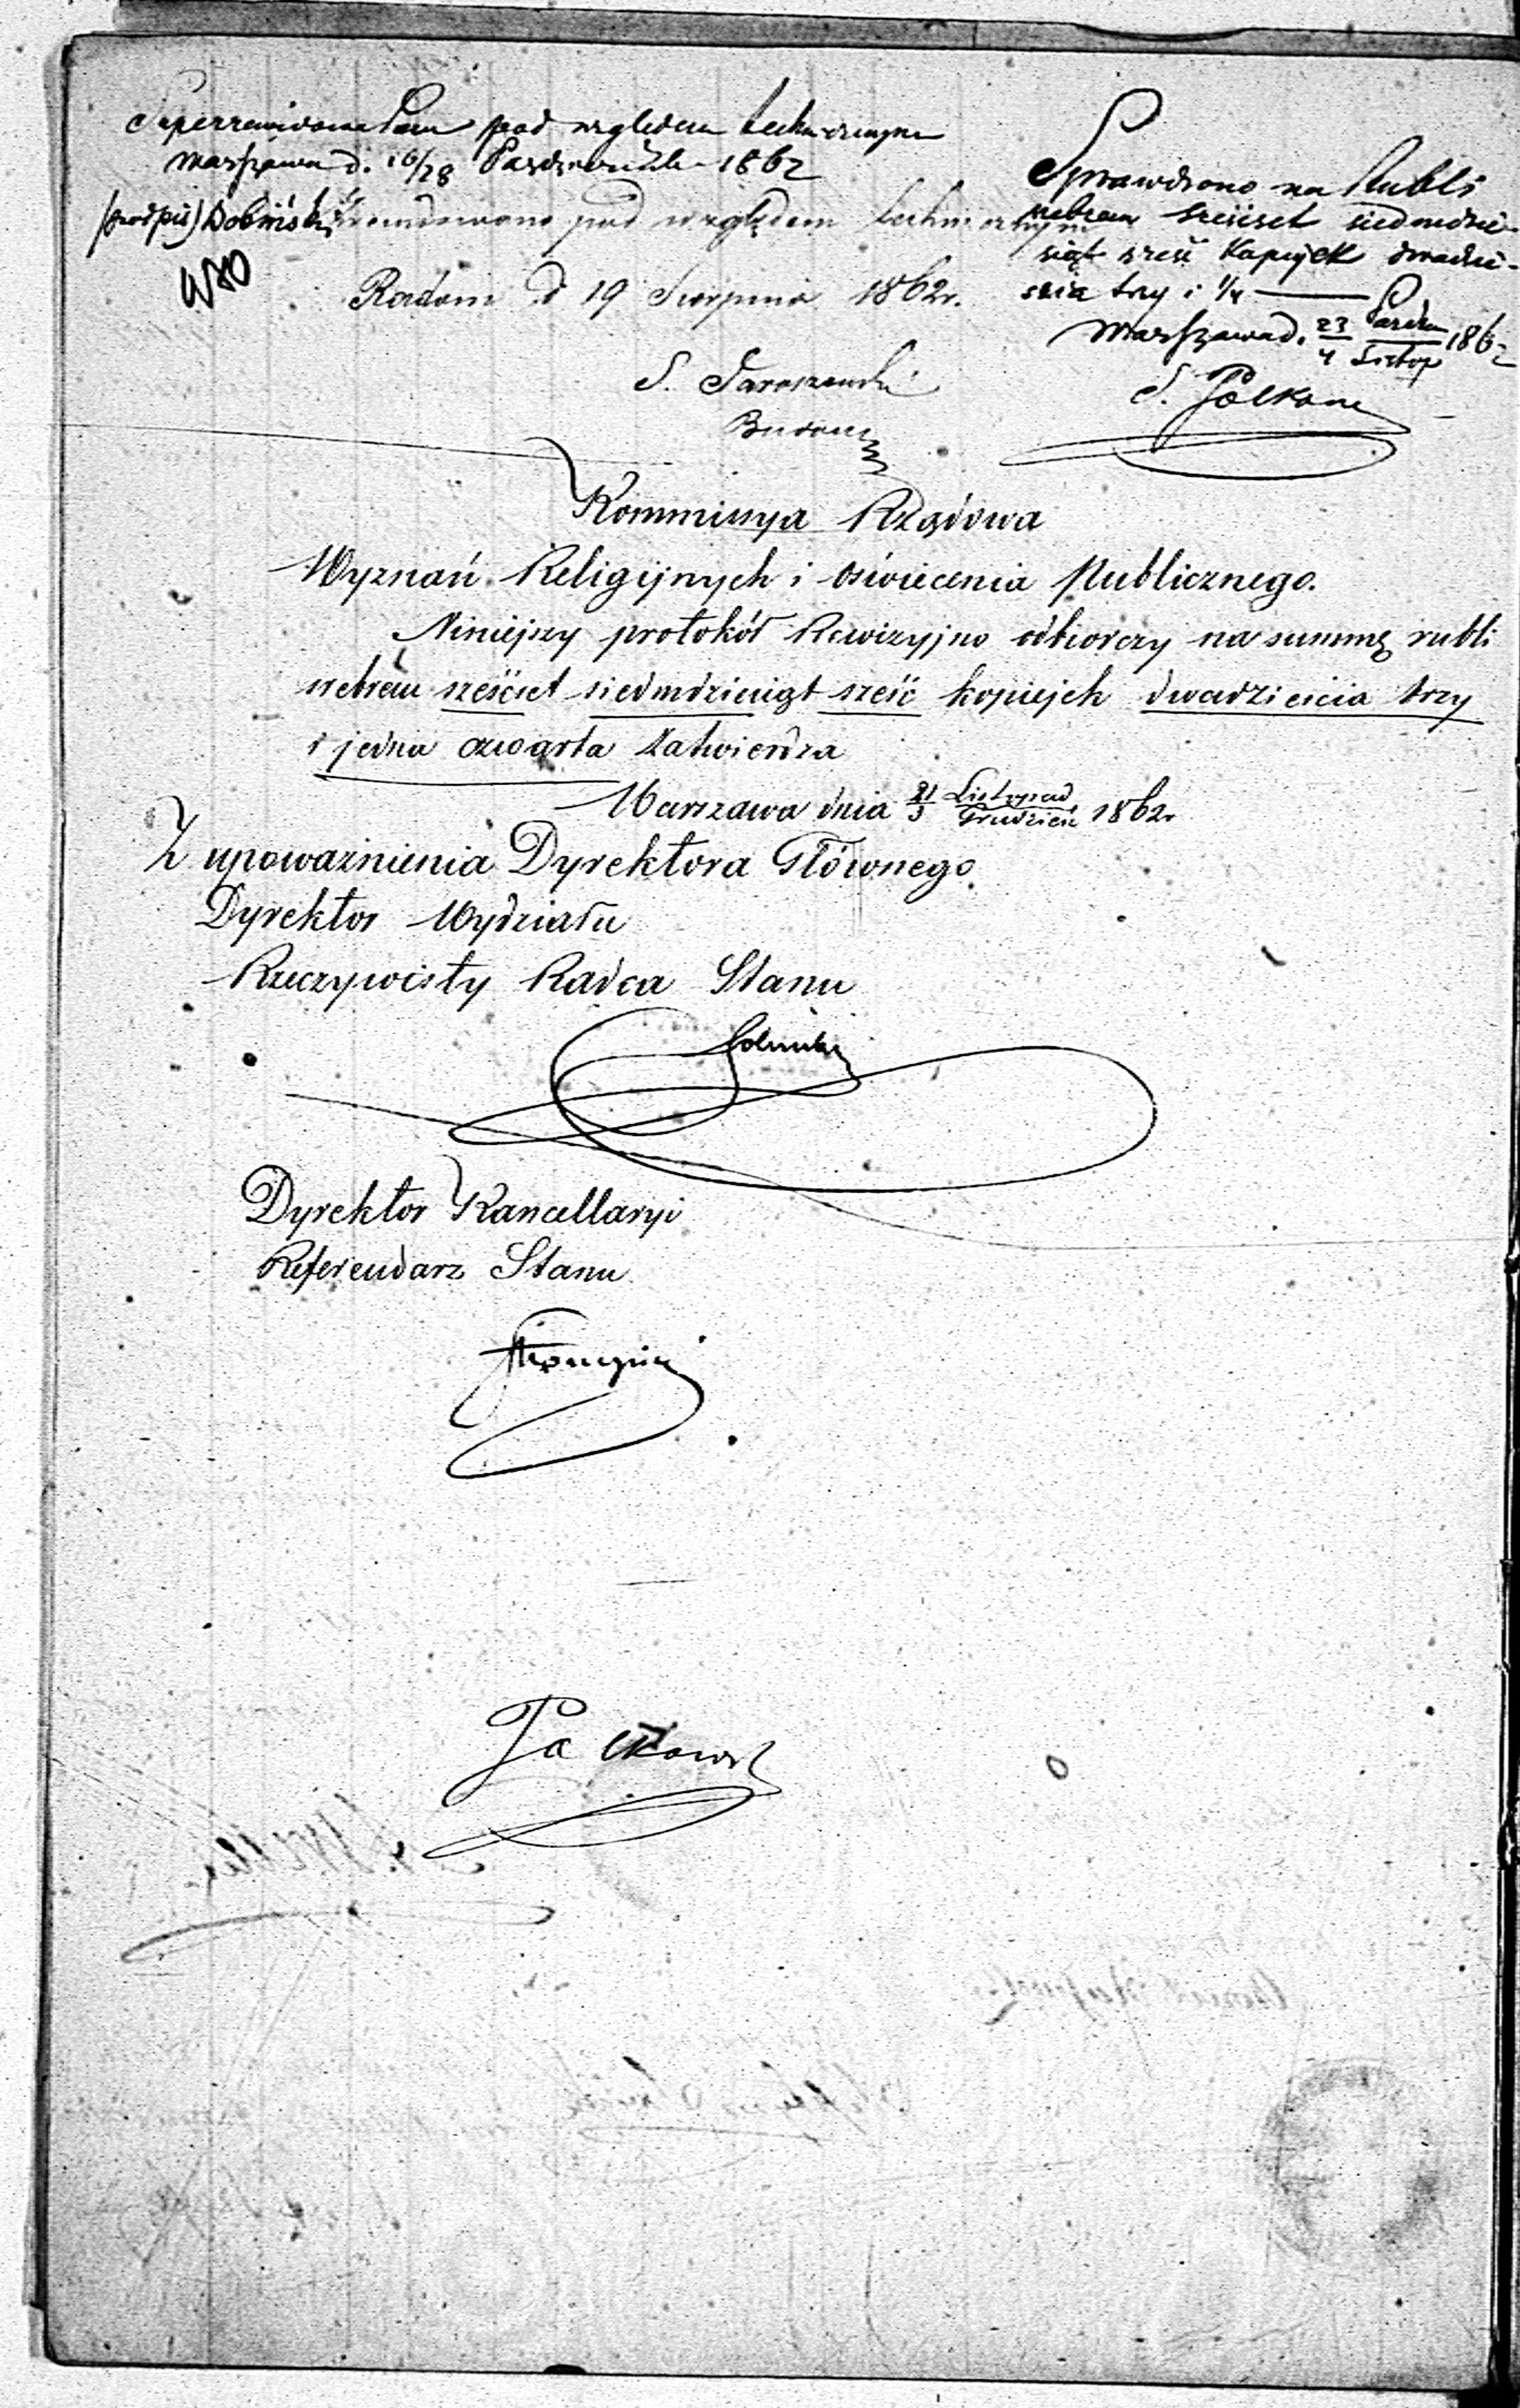 pod względem technicznym
Warszawa d. 16/28 Października 1862
(podpis)
pod względem technicznym
Radom d 19 Sierpnia 1862r.
S. Jaroszewski
Budow
Sprawdzono na Rubli
srebrem sześset siedmdzie-
siąt sześć Kopiejek dwadzie-
ścia trzy i 1/4
Warszawa d. 23/4 Paźdz/Listop 1862
Kommissya Rządowa
Wyznań Religijnych i Oświecenia Publicznego.
Niniejszy protokół Rewizyjno odbiorczy na summę rubli
srebrem sześćset siedmdziesiąt sześć kopiejek dwadzieścia trzy
i jedna czwarta zatwierdza
Warszawa dnia 21/3 Listopad/Grudzień 1862r
Z upoważnienia Dyrektora Głównego
Dyrektor Wydziału
Rzeczywisty Radca Stanu
Dyrektor Kancellaryi
Referendarz Stanu